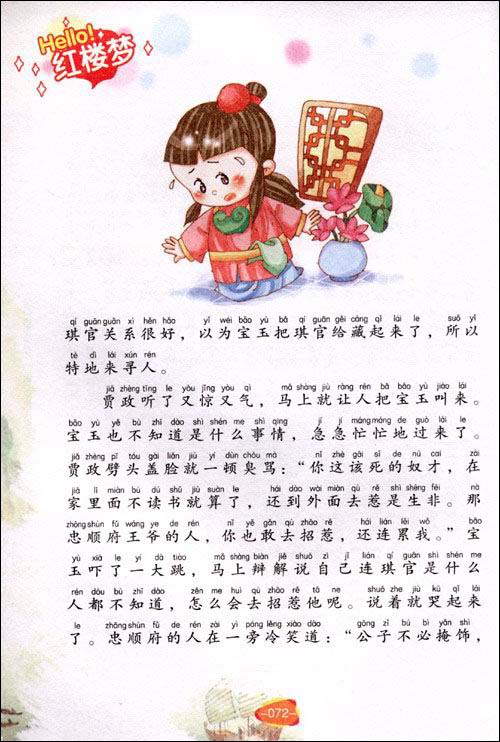 Hello!
红楼梦
qí guān guān xì hěn hǎo yǐ wéi bǎo yù bǎ qí guān gěi cáng qǐ lái le suǒ yǐ
琪官关系很好，以为宝玉把琪官给藏起来了，所以
tè dì lái xún rén
特地来寻人。
jiǎ zhèng tīng le yòu jīng yòu qì mǎ shàng jiù ràng rén bǎ bǎo yù jiào lái
贾政听了又惊又气，马上就让人把宝玉叫来。
bǎo yù yě bù zhī dào shì shén me shì qíng jí jí máng máng de guò lái le
宝玉也不知道是什么事情，急急忙忙地过来了。
jiǎ zhèng pī tóu gài liǎn jiù yí dùn chòu mà nǐ zhè gāi sǐ de nú cái zài
贾政劈头盖脸就一顿臭骂：“你这该死的奴才，在
jiā lǐ miàn bù dú shū jiù suàn le hái dào wài miàn qù rě shì shēng fēi nà
家里面不读书就算了，还到外面去惹是生非。那
zhōng shùn fǔ wáng ye de rén nǐ yě gǎn qù zhāo rě hái lián lěi wǒ bǎo
忠顺府王爷的人，你也敢去招惹，还连累我。”宝
yù xià le yí dà tiào mǎ shàng biàn jiě shuō zì jǐ lián qí guān shì shén me
玉吓了一大跳，马上辩解说自己连琪官是什么
rén dōu bù zhī dào zěn me huì qù zhāo rě tā ne shuō zhe jiù kū qǐ lái
人都不知道，怎么会去招惹他呢。说着就哭起来
le zhōng shùn fǔ de rén zài yì páng lěng xiào dào gōng zǐ bú bì yǎn shì
了。忠顺府的人在一旁冷笑道：“公子不必掩饰，
-072-